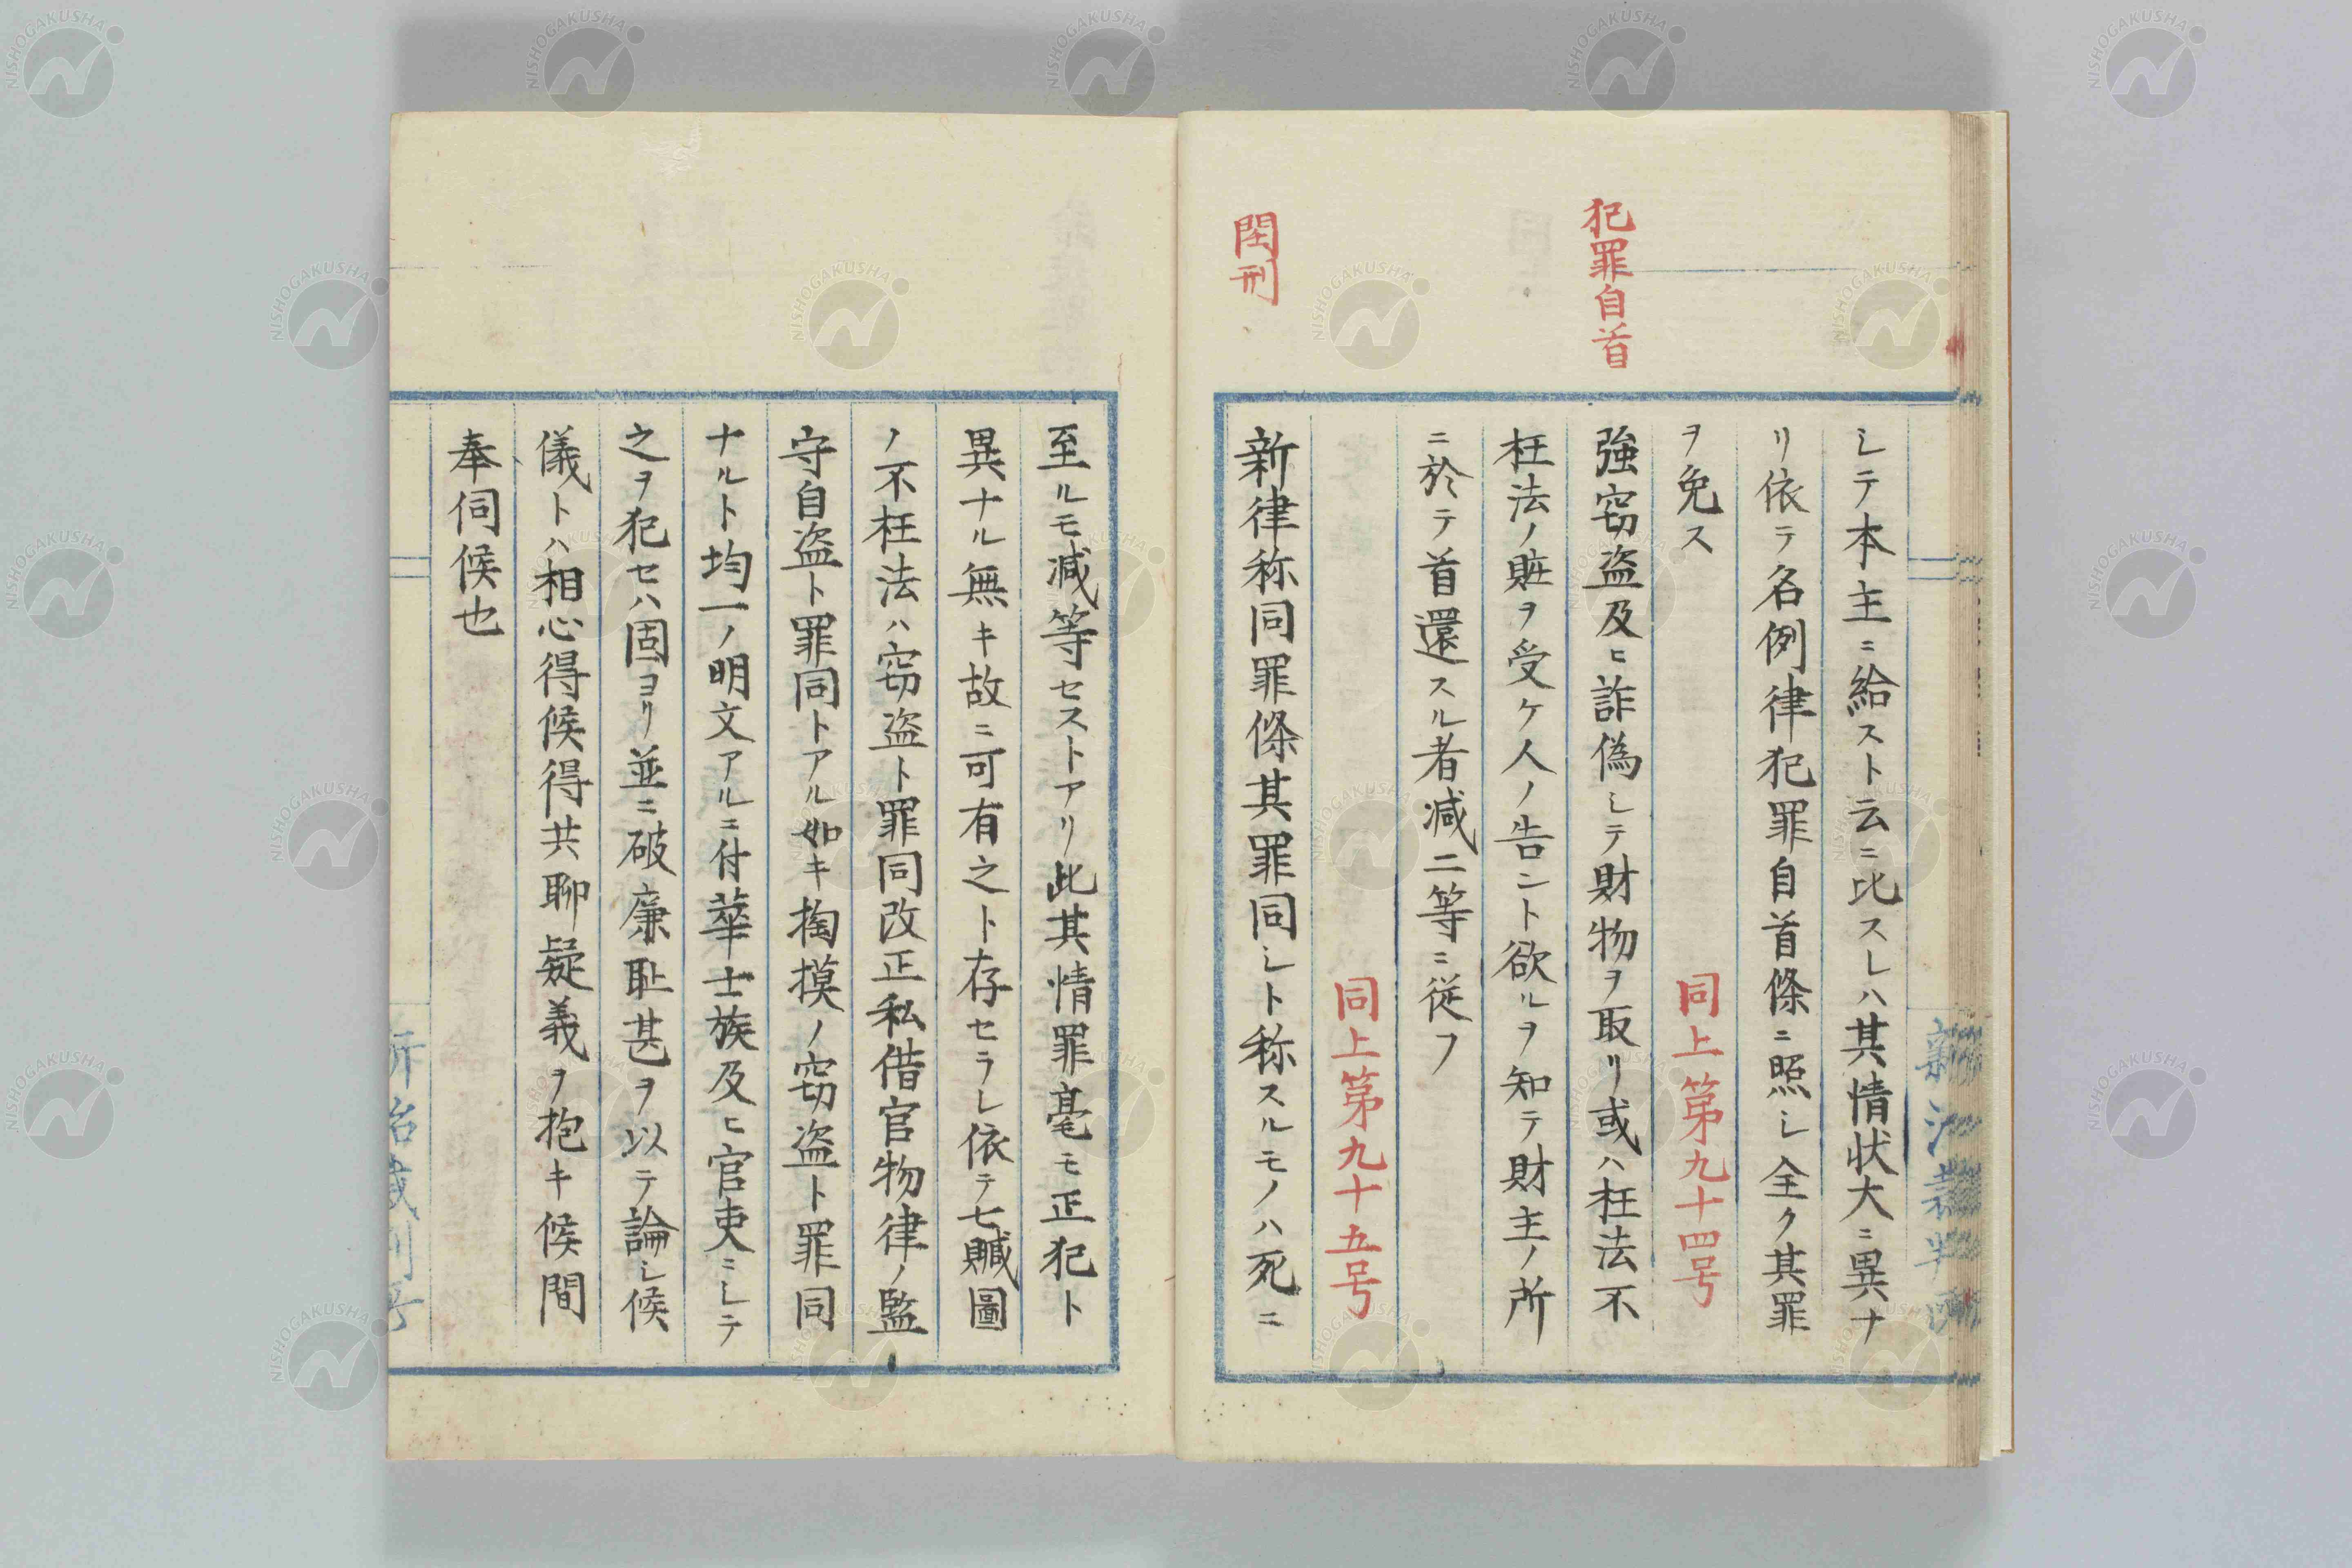 シテ本主ニ給スト云ニ比スレハ其情状大ニ異ナ
リ依テ名例律犯罪自首條ニ照シ全ク其罪
ヲ免ス
同上第九十四号
犯罪自首
強窃盗及ヒ詐偽シテ財物ヲ取リ或ハ枉法不
枉法ノ賍ヲ受ケ人ノ告ント欲ルヲ知テ財主ノ所
ニ於テ首還スル者减二等ニ従フ
同上第九十五号
閏刑
新律称同罪條其罪同シト称スルモノハ死ニ
至ルモ减等セストアリ此其情罪毫モ正犯ト
異ナル無キ故ニ可有之ト存セラレ依テ七贓圖
ノ不枉法ハ窃盗ト罪同改正私借官物律ノ監
守自盗ト罪同トアル如キ掏摸ノ窃盗ト罪同
ナルト均一ノ明文アルニ付華士族及ヒ官吏ニシテ
之ヲ犯セハ固ヨリ並ニ破廉耻甚ヲ以テ論シ候
儀トハ相心得候得共聊疑義ヲ抱キ候間
奉伺候也
NISHOGAKUSHA